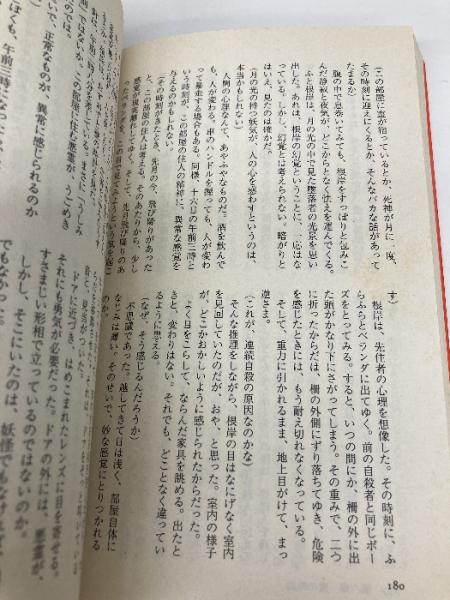 (この部屋に霊が宿っているとか、死神が月に一度、
その時刻に迎えにくるとか、そんなバカな話があって
たまるか)
腹の中で息まいてみても、根岸をすっぽりと包みこ
んだ静寂と夜気が、どこからとなく怯えを運んでくる。
ふと根岸は、月の光の中で見た墜落者の光景を思い
出した。あれは、根岸の幻覚ということに、一応はな
っている。しかし、幻覚とは考えられない。暗がりと
はいえ、見たのは確かだ。
(月の光の持つ妖気が、人の心を惑わすというのは、
本当かもしれない)
人間の心理なんて、あやふやなものだ。酒を飲んで
も、人が変わる。車のハンドルを握っても、人が変わ
って暴走する場合もある。同様、十六日の午前三時と
いう時刻が、この部屋の住人の精神に、異常な感覚を
与えるのかもしれない。
(その時刻がきたとき、先月の今、飛び降りがあった
と、この部屋の住人は考える。そのあたりから、少し
感覚が現実離れしてゆく。そして、先月飛び降りのあ
す)
根岸は、先住者の心理を想像した。その時刻に、ふ
らふらとベランダに出てゆく。前の自殺者と同じポー
ズをとってみる。すると、いつの間にか、柵の外に出
た頭がかなり下にさがってしまう。その重みで、二つ
に折ったからだは、柵の外側にずり落ちてゆき、危険
を感じたときには、もう耐え切れなくなっている。
そして、重力に引かれるまま、地上目がけて、まっ
逆さま。
(これが、連続自殺の原因なのかな)
そんな推理をしながら、根岸の目はなにげなく室内
を見回していたのだが、おや、と思った。室内の様子
が、どこかおかしいように感じられたからだった。
よく目をこらして、ならんだ家具を眺める。出たと
きと、変わりはない。それでも、どことなく違ってい
るように思える。
(なぜ、そう感じるんだろうか)
不思議であった。越してきて日は浅く、部屋自体に
なじみは薄い。そのせいで、妙な感覚にとりつかれる
のか。
180
ドアに近づき、はめこまれたレンズに目を寄せる。
それにも勇気が必要だった。ドアの外には、悪霊が、
すさまじい形相で立っているのではないのか。
しかし、そこにいたのは、妖怪でもなけ
でもなかった